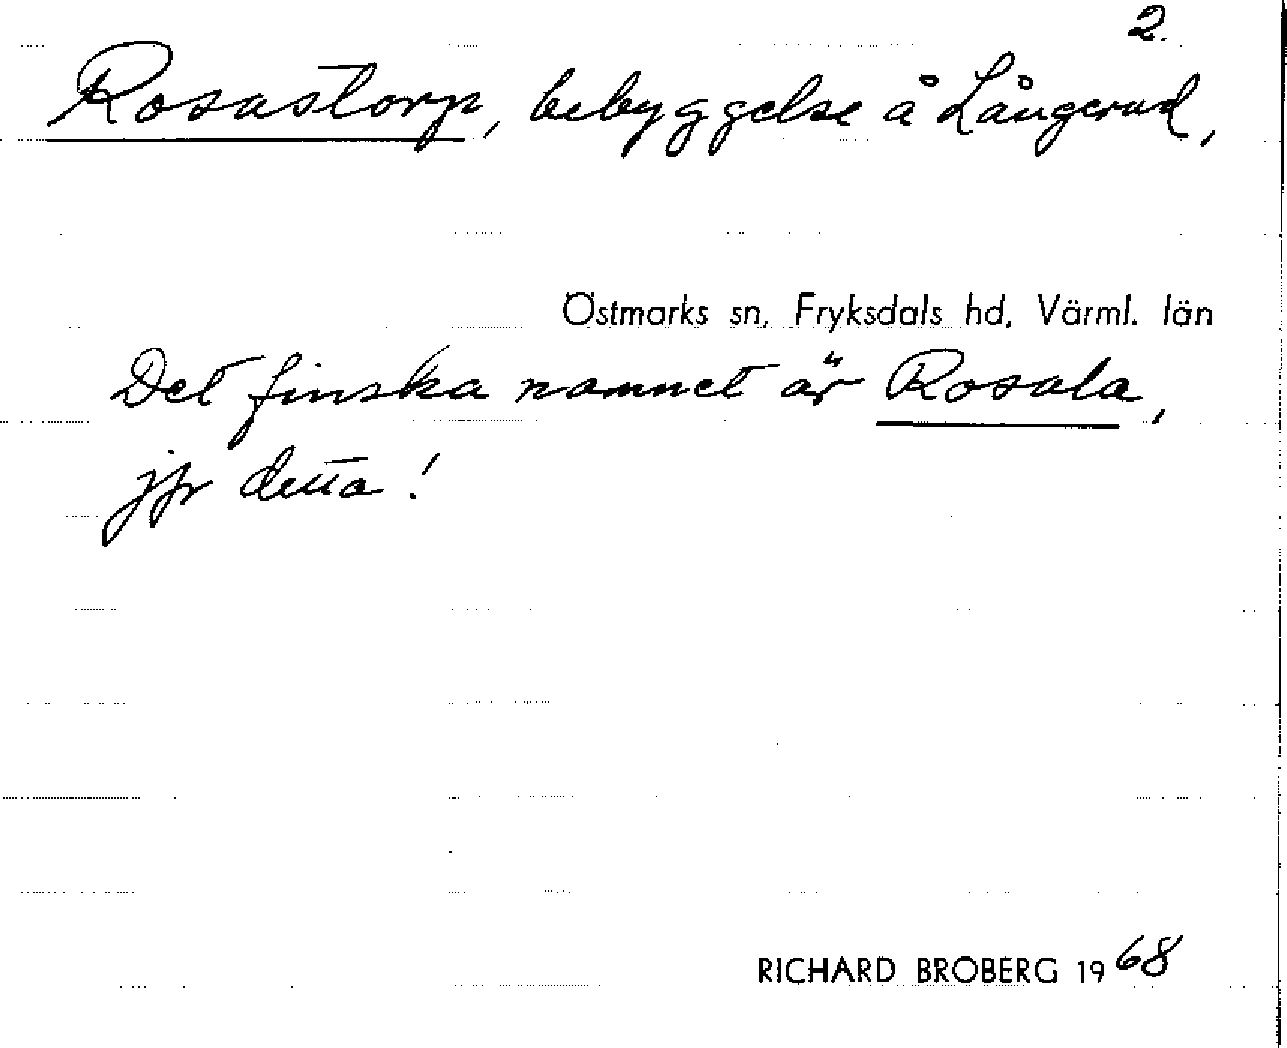 2.
Rosastorp, bebyggelse å Långerud,
Östmarks sn, Fryksdals hd, Värml. län
Det finska namnet är Rosala,
jfr detta!
RICHARD BROBERG 1968